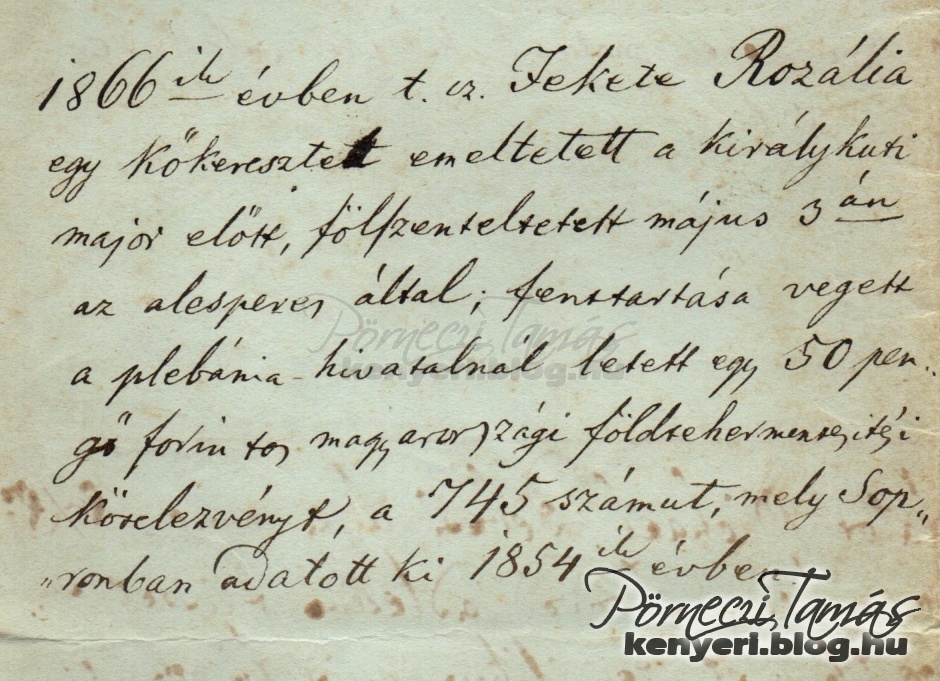 1866 ik évben t. cz. Fekete Rozália
egy kőkeresztett emeltetett a királykuti
major előtt, fölszenteltetett május 3 án
az alesperes által; fenttartása vegett
a plebánia-hivatalnál letett egy 50 pen„
gő forintos magyarországi földtehermentesitési
kötelezvényt, a 745 számut, mely Sop„
„ronban adatott ki 1854 ik évben.
Pörneczi Tamás
kenyeri.blog.hu
Pörneczi Tamás
kenyeri.blog.hu